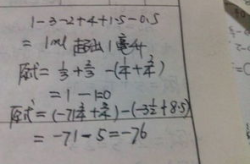 1-3-2+4+1.5-0.5
=
原式=1/3+2/3-(1/4+3/4)
=1-1=0
原式=(-71 3/4+3/4)-(-3 1/2+8.5)
=-71-5=-76